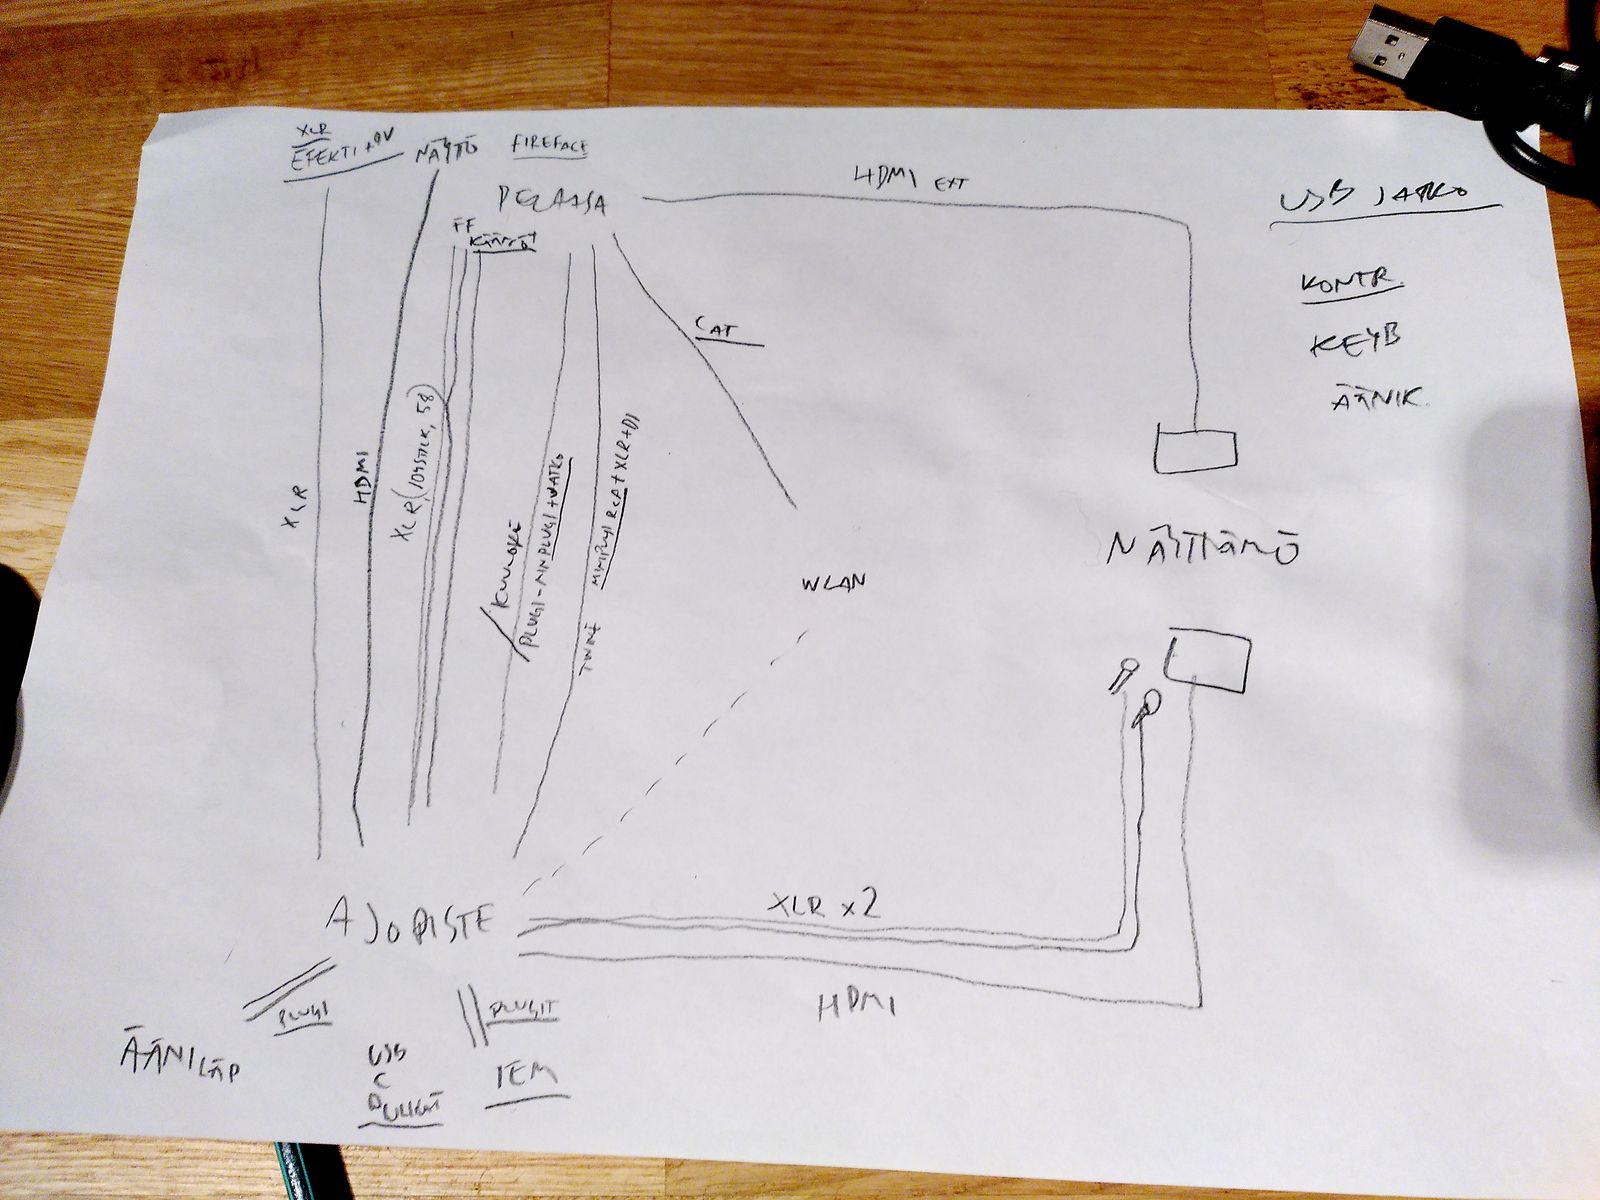 XLR
EFEKTI + DV
NÄYTTÖ
FIREFACE
HDMI EXT
USB JATKO
PELAAJA
FF
KONTR.
CAT
KEYB
ÄÄNIK.
XLR (JOYSTICK, 58)
HDMI
XLR
KUULOKE
PLUGI - MINIPLUGI + JATKO
MINIPLUGI RCA + XLR + DI
TWINE
NÄYTTÄMÖ
WLAN
XLR x2
AJOPISTE
HDMI
PLUGI
PLUGIT
ÄÄNILÄP
USB
C
IEM